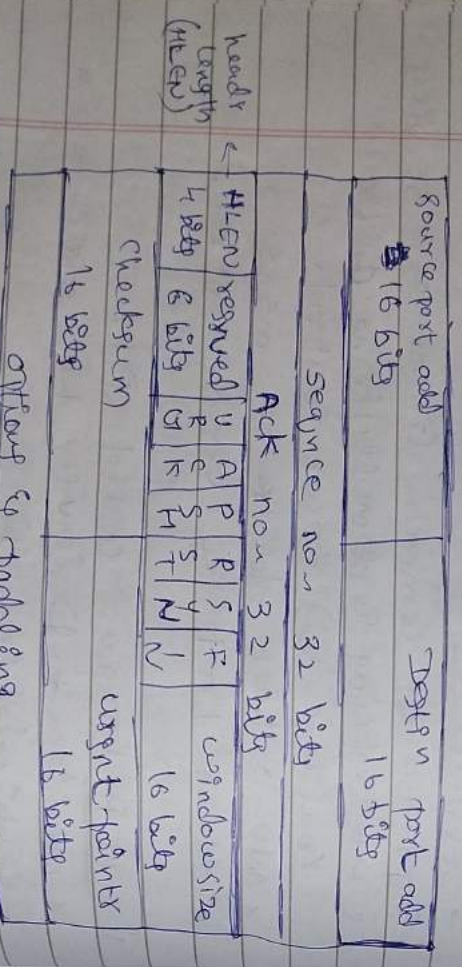 source port add
16 bits
Destpn port add
16 bits
seqnce no. 32 bits
Ack no. 32 bits
headr
length
(HLEN)
← HLEN
4 bits
resrved
6 bits
U
R
G
A
C
K
P
S
H
R
S
T
S
Y
N
F
I
N
windowsize
16 bits
checksum
16 bits
urgnt-pointr
16 bits
options &